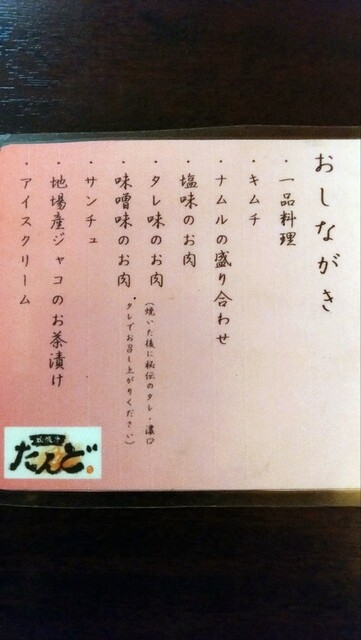 おしながき
・一品料理
・キムチ
・ナムルの盛り合わせ
・塩味のお肉
・タレ味のお肉
(焼いた後に秘伝のタレ・濃口
タレでお召し上がりください)
・味噌味のお肉
・サンチュ
・地場産ジャコのお茶漬け
・アイスクリーム
たんど